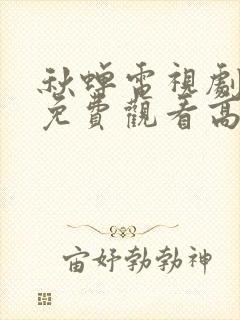 秋蟬雷視劇
免費觀看高
宙好勃勃神